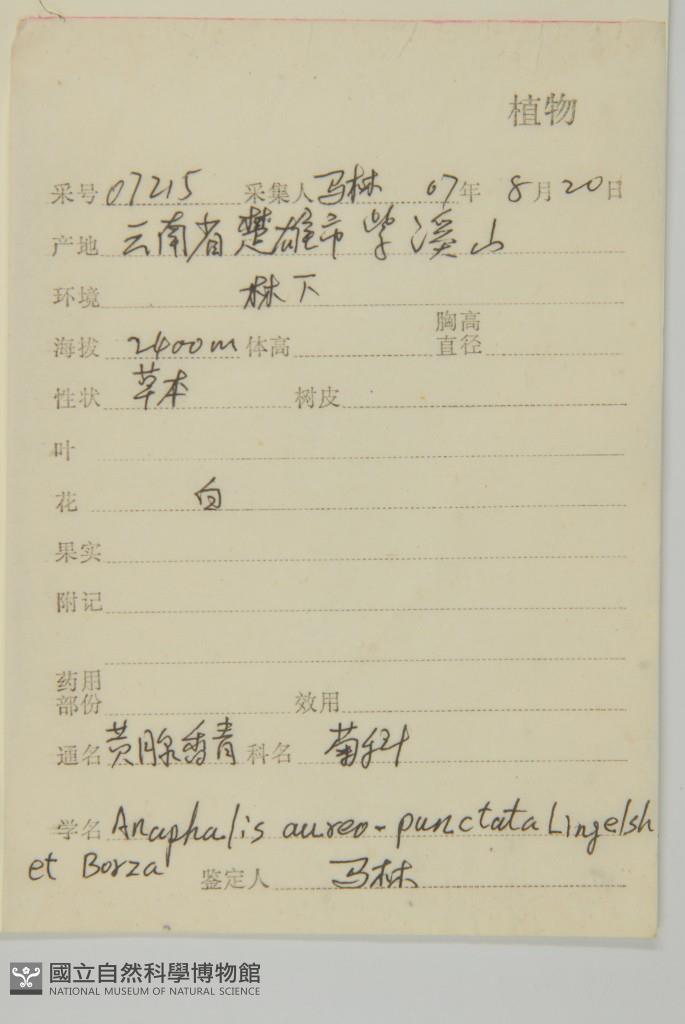 植物
采号 07215 采集人 马林 07年 8月20日
产地 云南省楚雄市紫溪山
环境 林下
海拔 2400m 体高 胸高直径
性状 草本 树皮
叶
花 白
果实
附记
药用部份 效用
通名 黄腺香青 科名 菊科
学名 Anaphalis aureo-punctata Lingelsh
et Borza 鉴定人 马林
國立自然科學博物館
NATIONAL MUSEUM OF NATURAL SCIENCE